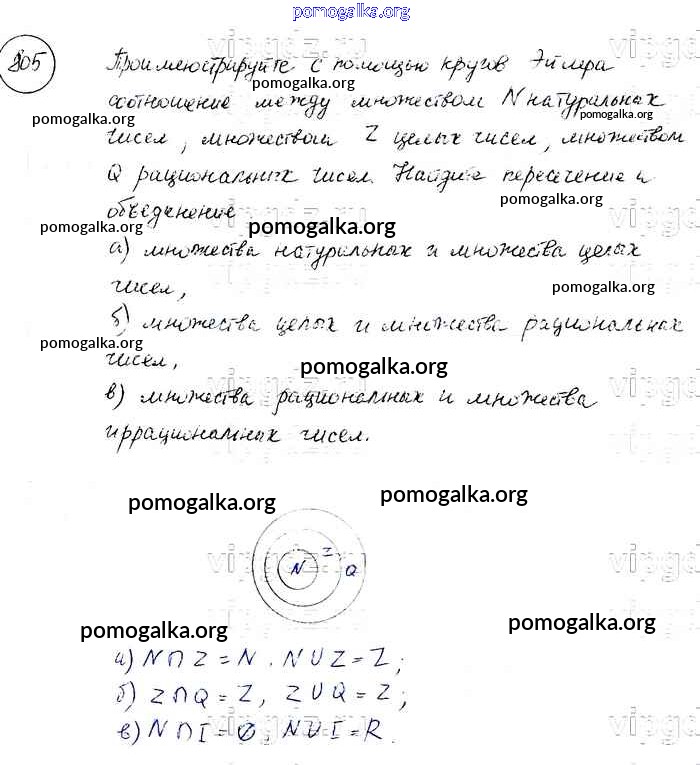 pomogalka.org
805
Проиллюстрируйте с помощью кругов Эйлера
pomogalka.org
соотношение между множеством N натуральных
pomogalka.org pomogalka.org
чисел, множеством Z целых чисел, множеством
Q рациональных чисел. Найдите пересечение и
pomogalka.org
объединение
pomogalka.org pomogalka.org
а) множества натуральных и множества целых
чисел,
pomogalka.org
б) множества целых и множества рациональных
pomogalka.org
чисел,
pomogalka.org
в) множества рациональных и множества
иррациональных чисел.
pomogalka.org pomogalka.org
N Z Q
pomogalka.org pomogalka.org
а) N ∩ Z = N, N U Z = Z;
б) Z ∩ Q = Z, Z U Q = Z;
в) N ∩ I = Ø, N U I = R.